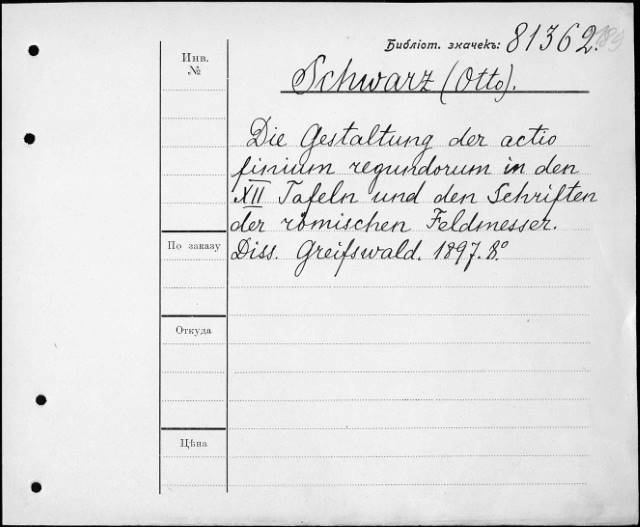 Библіот. значекъ: 81362.
Инв.
№
Schwarz (Otto).
Die Gestaltung der actio
finium regundorum in den
XII Tafeln und den Schriften
der römischen Feldmesser.
Diss. Greifswald. 1897. 8°
По заказу
Откуда
Цѣна